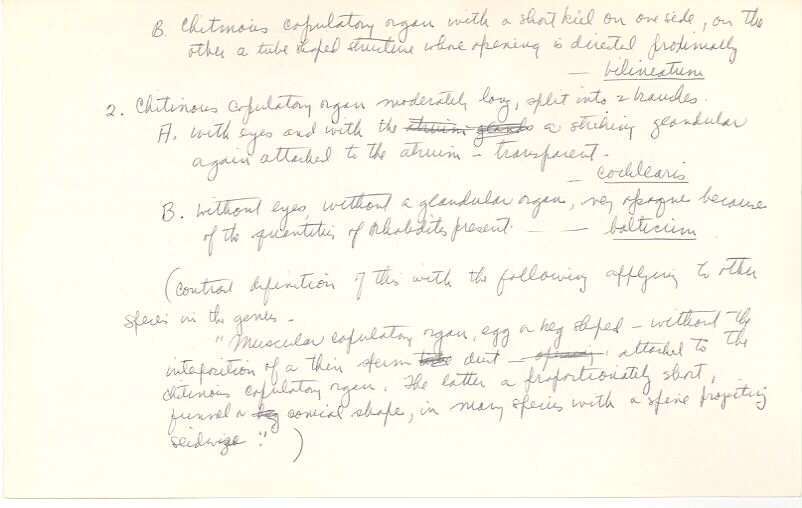 B. Chitinous copulatory organ with a short kiel on one side, on the
other a tube shaped structure whose opening is directed proximally
— bilineatum
2. Chitinous copulatory organ moderately long, split into 2 branches.
A. with eyes and with the atrium glands a striking glandular
organ attached to the atrium - transparent -
- cochlearis
B. without eyes, without a glandular organ, very opaque because
of the quantities of rhabdites present. — balticum
(contrast definition of this with the following applying to other
species in the genus -
"Muscular copulatory organ, egg or keg shaped - without the
interposition of a thin sperm duct attached to the
chitinous copulatory organ. The latter a proportionately short,
funnel or conical shape, in many species with a spine projecting
seidwize". )